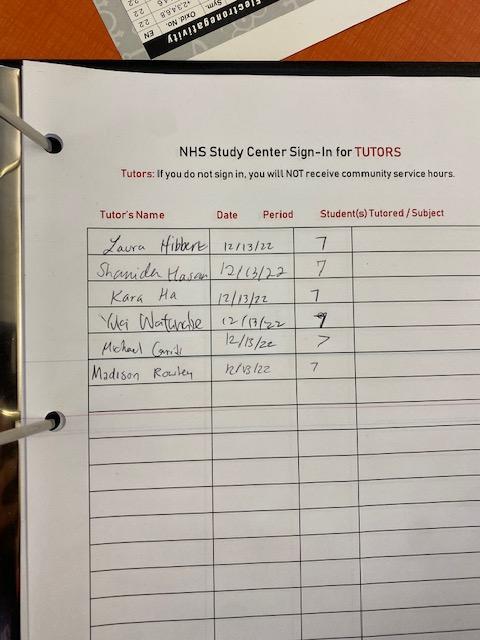 Electronegativity
Sym. Oxid. No. EN
NHS Study Center Sign-In for TUTORS
Tutors: If you do not sign in, you will NOT receive community service hours.
Tutor's Name Date Period Student(s) Tutored / Subject
Laura Hibbert 12/13/22 7
Shanida Hasan 12/13/22 7
Kara Ha 12/13/22 7
Yuki Watanabe 12/13/22 7
Michael 12/13/22 7
Madison Rowley 12/13/22 7